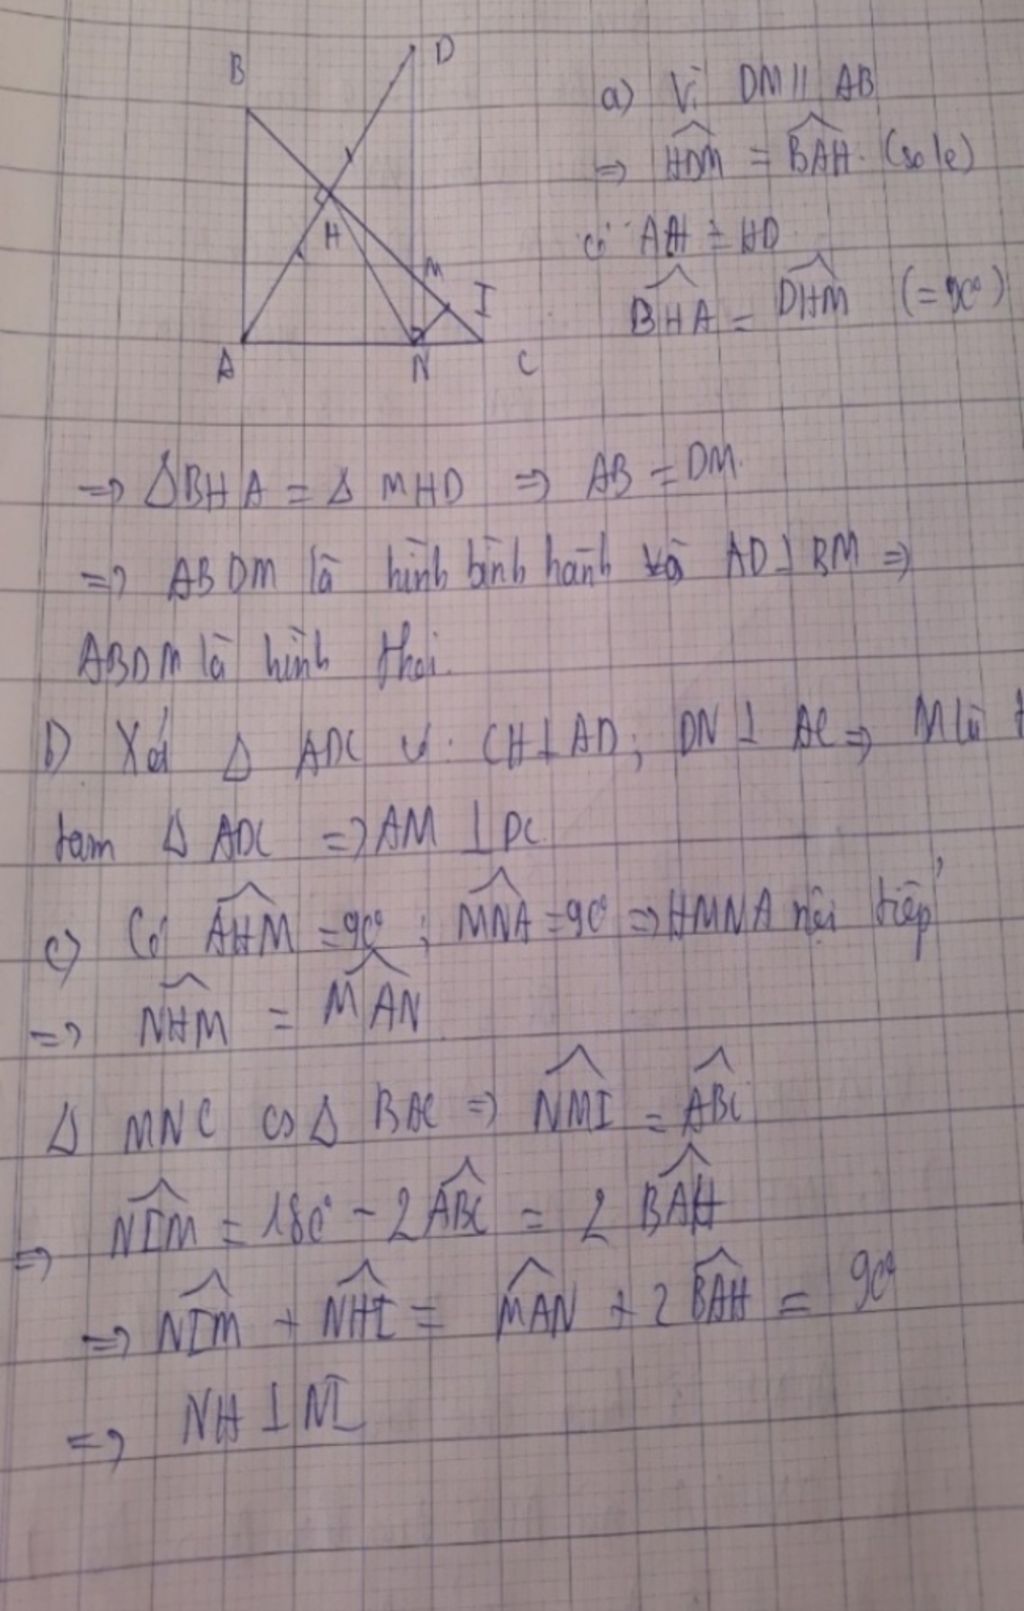 B
D
H
M
I
A
N
C
a) Vì DM || AB
=> HDM = BAH (so le)
có AH = HD
BHA = DHM (= 90°)
=> Δ BHA = Δ MHD => AB = DM.
=> ABDM là hình bình hành và AD ⊥ BM =>
ABDM là hình thoi.
b) Xét Δ ADC có: CH ⊥ AD; DN ⊥ AC => M là
tâm Δ ADC => AM ⊥ DC
c) Có AHM = 90°; MNA = 90° => HMNA nội tiếp
=> NHM = MAN
Δ MNC ∽ Δ BAC => NMI = ABC
=> NIM = 180° - 2 ABC = 2 BAH
=> NIM + NHI = MAN + 2 BAH = 90°
=> NH ⊥ NI